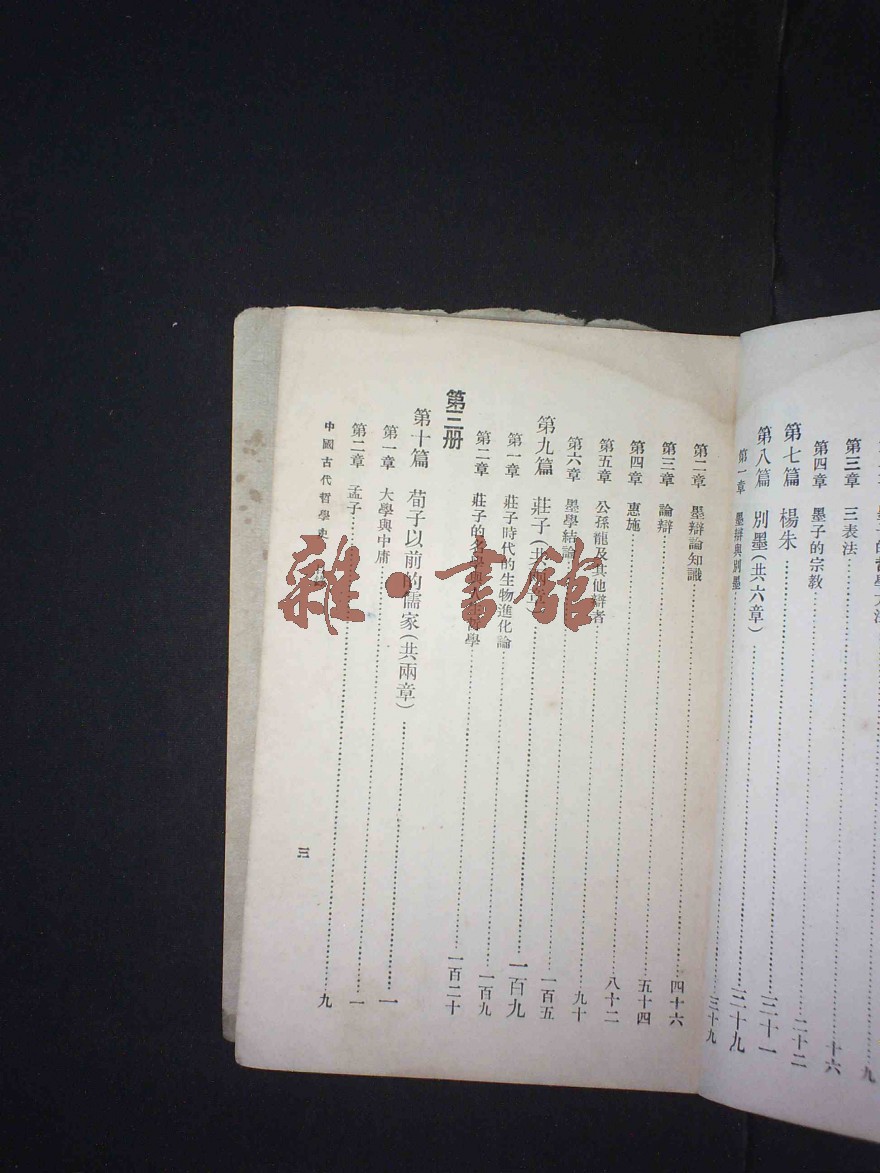 第三章 三表法 十六
第四章 墨子的宗教 二十二
第七篇 楊朱 三十一
第八篇 別墨(共六章) 三十九
第一章 墨辯與別墨 三十九
第二章 墨辯論知識 四十六
第三章 論辯 五十四
第四章 惠施 八十二
第五章 公孫龍及其他辯者 九十
第六章 墨學結論 一百五
第九篇 莊子(共兩章) 一百九
第一章 莊子時代的生物進化論 一百九
第二章 莊子的名學與人生哲學 一百二十
第三册
第十篇 荀子以前的儒家(共兩章) 一
第一章 大學與中庸 一
第二章 孟子 九
中國古代哲學史
三
雜·書館